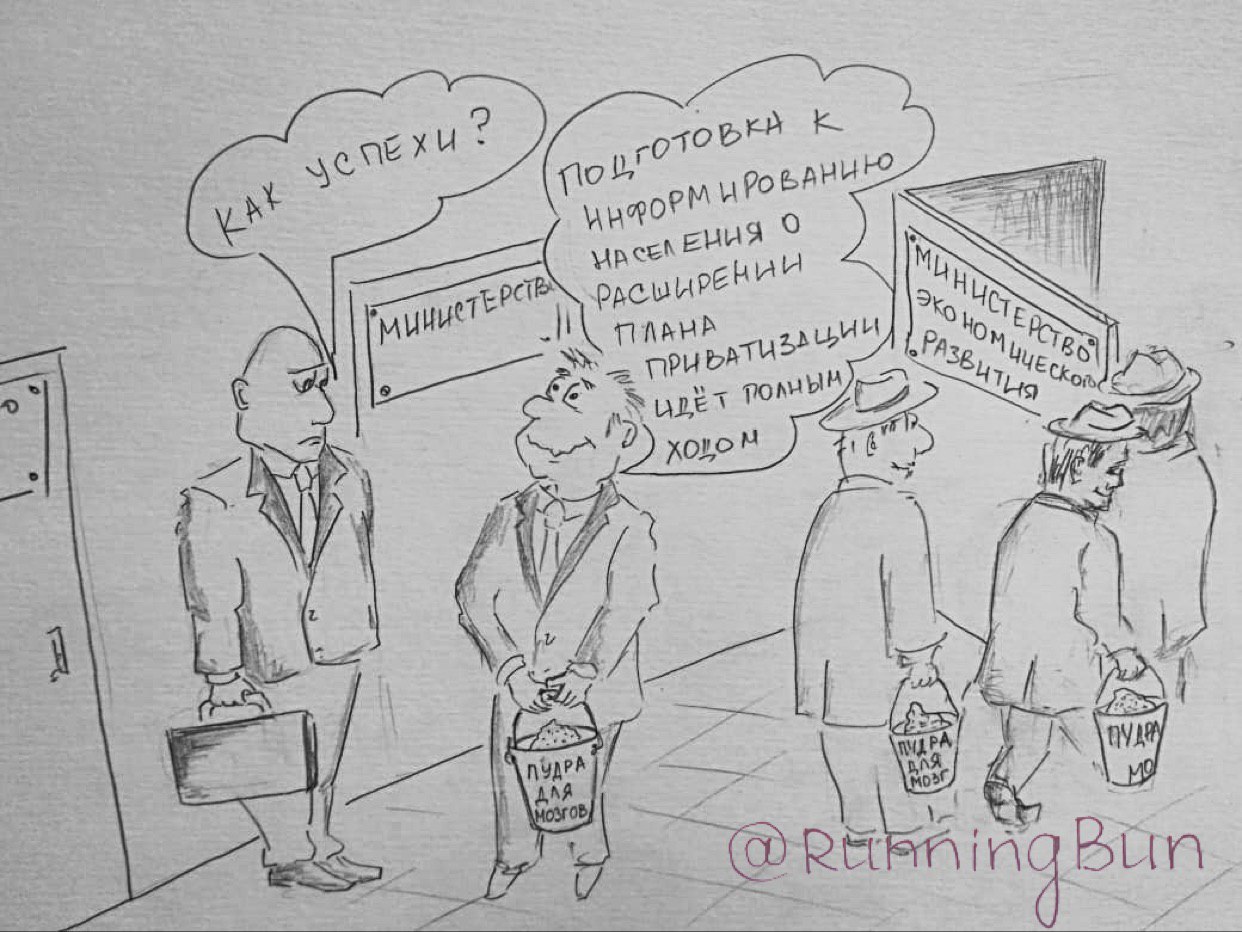 КАК УСПЕХИ?
ПОДГОТОВКА К
ИНФОРМИРОВАНИЮ
НАСЕЛЕНИЯ О
РАСШИРЕНИИ
ПЛАНА
ПРИВАТИЗАЦИИ
ИДЁТ ПОЛНЫМ
ХОДОМ
МИНИСТЕРСТВ
МИНИСТЕРСТВО
ЭКОНОМИЧЕСКОГО
РАЗВИТИЯ
ПУДРА
ДЛЯ
МОЗГОВ
ПУДРА
ДЛЯ
МОЗГ
ПУДРА
МО
@RunningBun